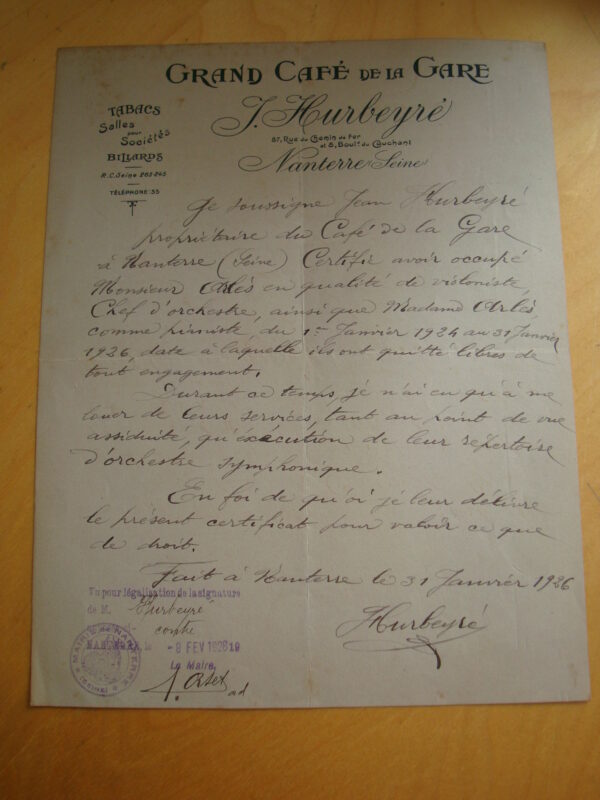 GRAND CAFÉ DE LA GARE
TABACS
Salles
pour
Sociétés
BILLARDS
R.C. Seine 263-245
TÉLÉPHONE: 55
J. Hurbeyré
87, Rue du Chemin de Fer
et 8, Boul.t du Couchant
Nanterre (Seine)
Je soussigne Jean Hurbeyré
propriétaire du Café de la Gare
à Nanterre (Seine) Certifie avoir occupé
Monsieur Arlès en qualité de violoniste,
Chef d'orchestre, ainsi que Madame Arlès
comme pianiste, du 1er Janvier 1924 au 31 Janvier
1926, date à laquelle ils ont quitté libres de
tout engagement.
Durant ce temps, je n'ai eu qu'à me
louer de leurs services, tant au point de vue
assiduité, qu'exécution de leur répertoire
d'orchestre symphonique.
En foi de qu'oi je leur délivre
le présent certificat pour valoir ce que
de droit.
Fait à Nanterre le 31 Janvier 1926
Hurbeyré
Vu pour légalisation de la signature
de M. Hurbeyré
contre
NANTERRE, le - 8 FEV 1926 19
Le Maire,
MAIRIE DE NANTERRE
(Seine)